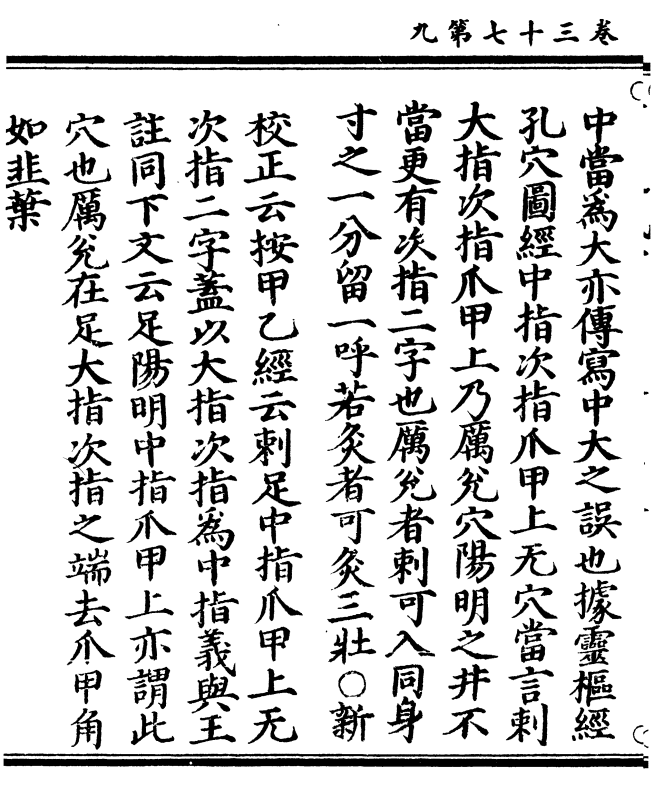 卷三十七第九
中當為大亦傳寫中大之誤也據靈樞經
孔穴圖經中指次指爪甲上无穴當言刺
大指次指爪甲上乃厲兊穴陽明之井不
當更有次指二字也厲兊者刺可入同身
寸之一分留一呼若灸者可灸三壯○新
校正云按甲乙經云刺足中指爪甲上无
次指二字蓋以大指次指為中指義與王
註同下文云足陽明中指爪甲上亦謂此
穴也厲兊在足大指次指之端去爪甲角
如韭葉